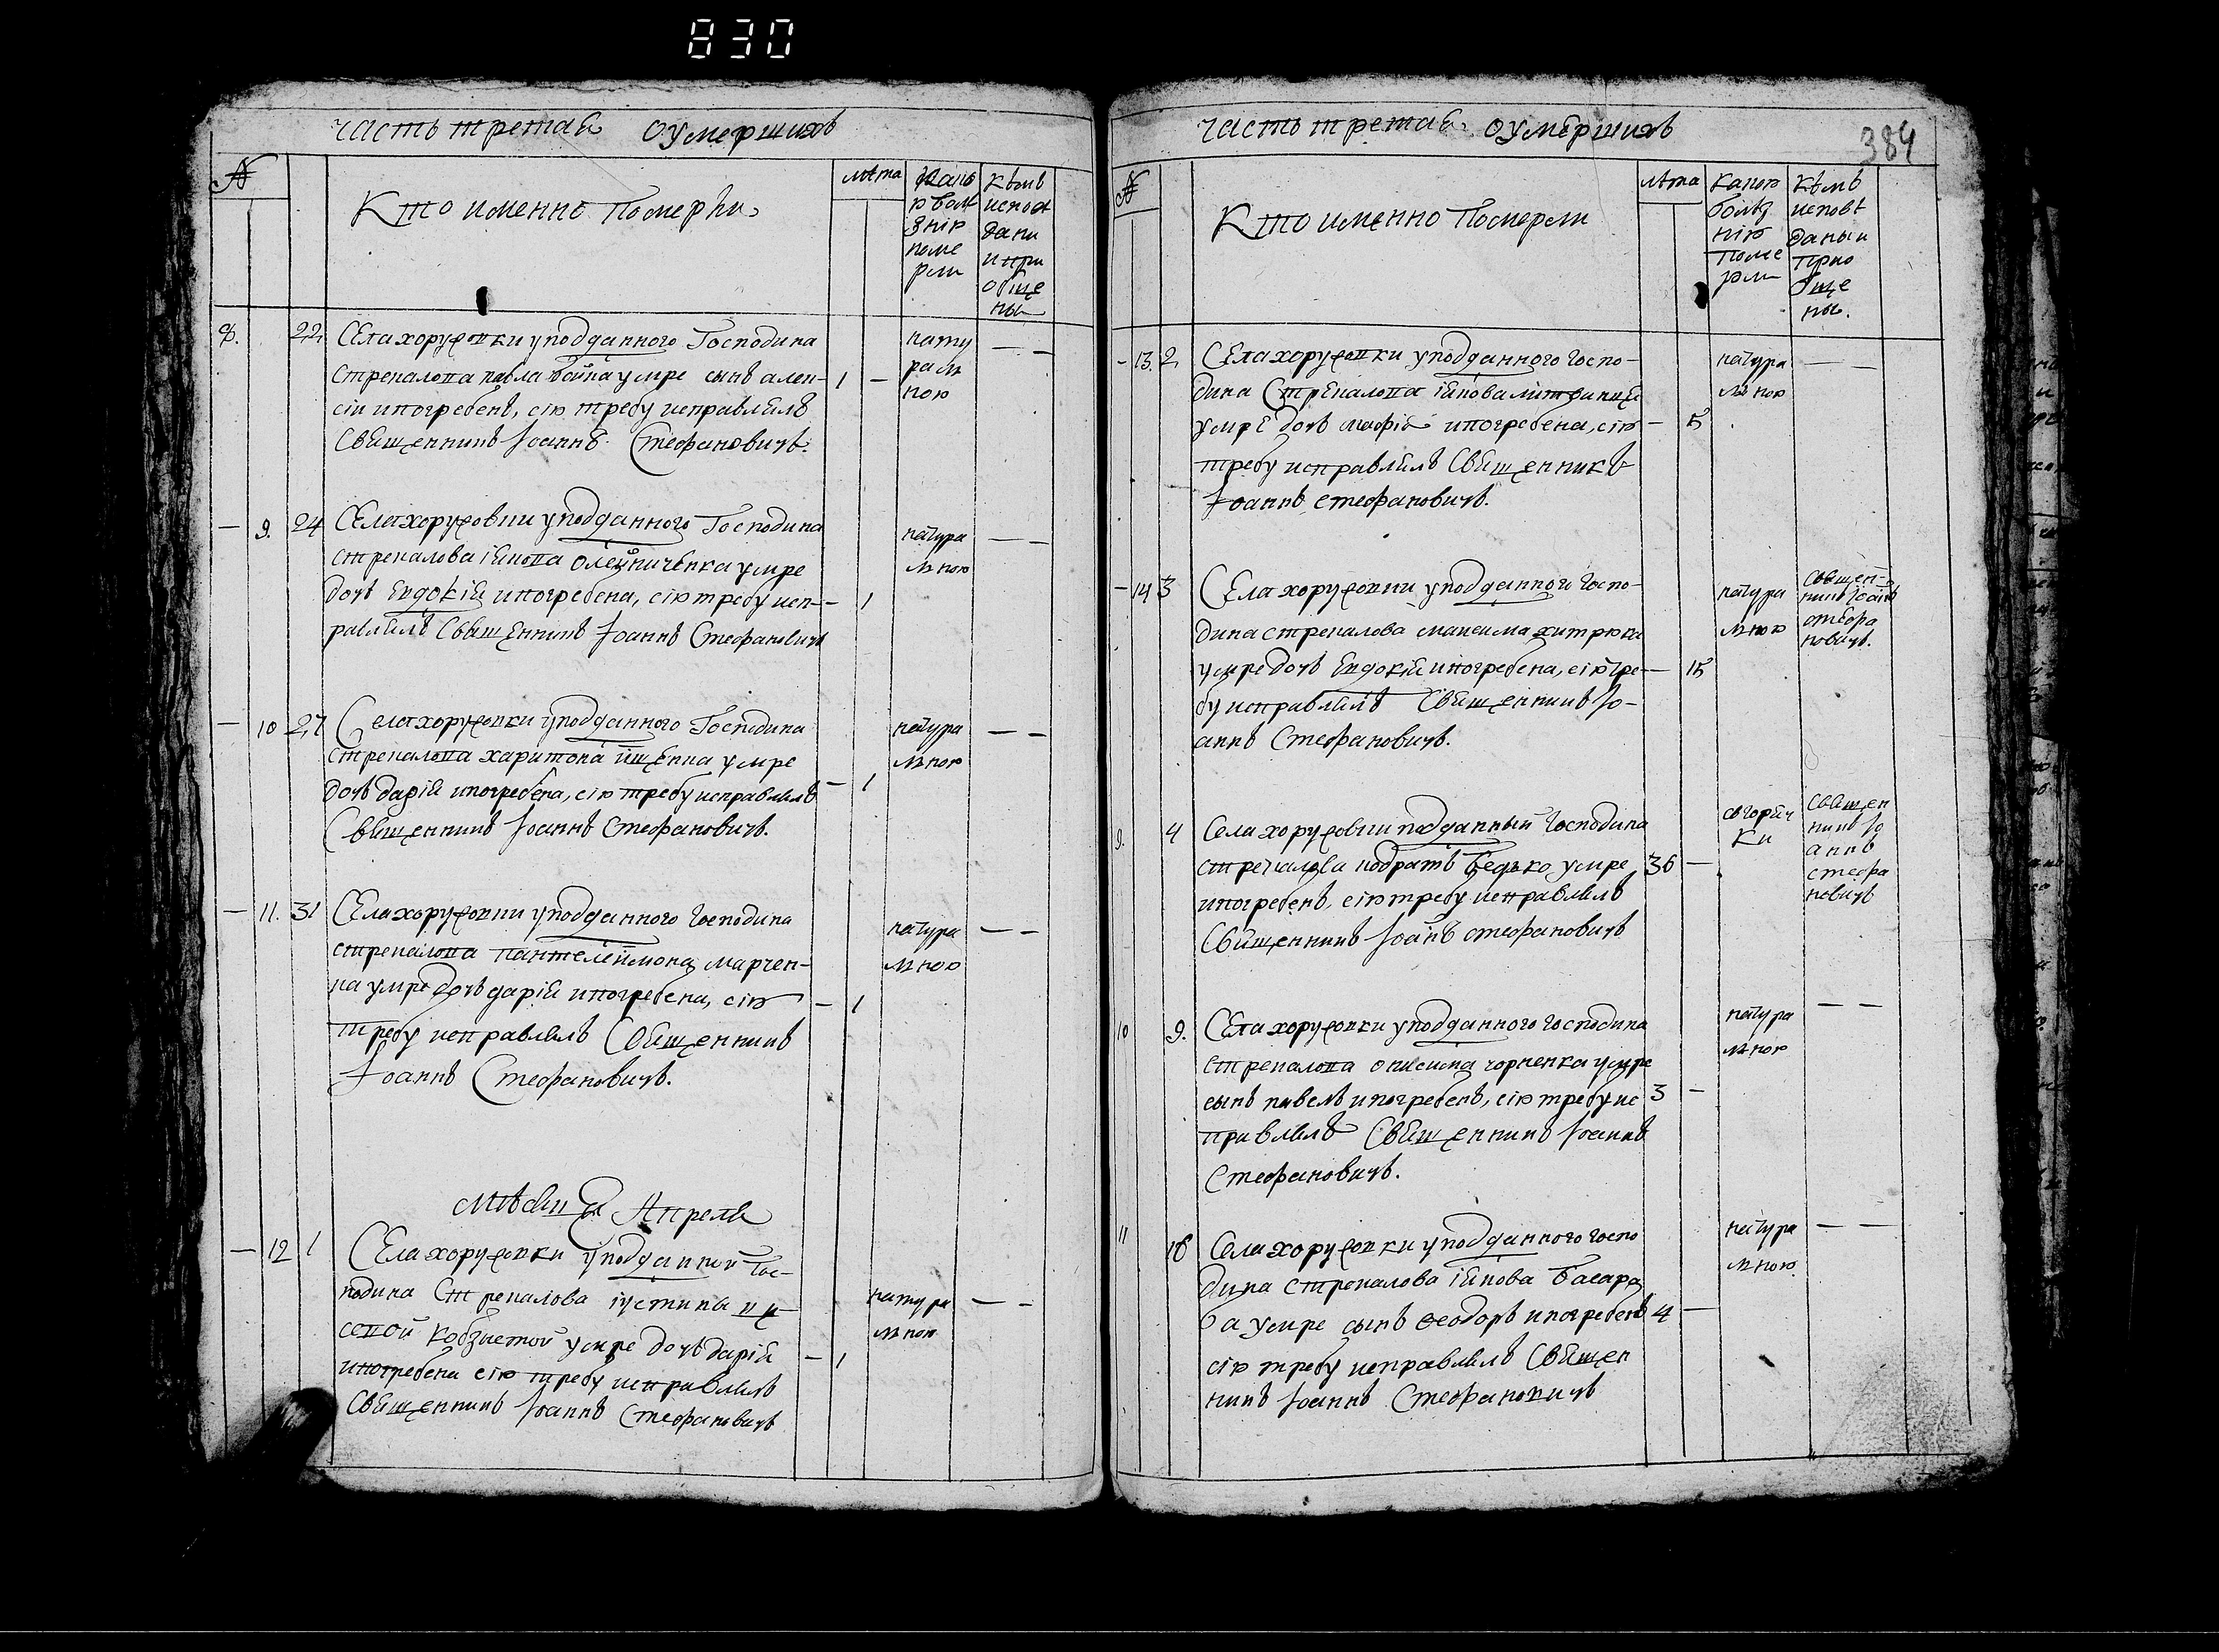 830
часть третаѧ оумершихъ
№
Кто именно Померли
лѣта
какою болѣзнію померли
кѣмъ исповѣдани и приобщены
8. 22 Села хоружовки у подданного Господина
Стрекалова павла умре сынъ алек- 1 —
сій и погребенъ, сію требу исправлѧлъ
Свѧщенникъ Іоаннъ Стефановичъ.
натуралною — —
— 9. 24 Села хоружовки у подданного Господина
стрекалова іѧкова олейниченка умре
дочъ Евдокіѧ и погребена, сію требу исп- — 1
равлѧлъ Свѧщенникъ Іоаннъ Стефановичъ
натуралною — —
— 10 27 Села хоружовки у подданного Господина
стрекалова харитона ищенка умре
дочъ даріѧ и погребена, сію требу исправлѧлъ — 1
Свѧщенникъ Іоаннъ Стефановичъ.
натуралною — —
— 11. 31 Села хоружовки у подданного Господина
стрекалова пантелеймона марчен-
ка умре дочъ даріѧ и погребена, сію — 1
требу исправлѧлъ Свѧщенникъ
Іоаннъ Стефановичъ.
натуралною — —
мѣсѧца Апрелѧ
— 12 1 Села хоружовки у подданной Гос-
подина Стрекалова іустины
умре дочъ даріѧ — 1
и погребена сію требу исправлѧлъ
Свѧщенникъ Іоаннъ Стефановичъ
натуралною — —
часть третаѧ оумершихъ
384
№
Кто именно Померли
лѣта
какою болѣзнію померли
кѣмъ исповѣданы и приобщены.
— 13. 2 Села хоружовки у подданного Госпо-
дина Стрекалова іѧкова
умре дочъ марфіѧ и погребена, сію — 5
требу исправлѧлъ Свѧщенникъ
Іоаннъ Стефановичъ.
натуралною — —
— 14 3 Села хоружовки у подданного Госпо-
дина стрекалова максима хитрюка
умре дочъ Евдокіѧ и погребена, сію тре- — 15
бу исправлѧлъ Свѧщенникъ Іо-
аннъ Стефановичъ.
натуралною
Свѧщенникъ Іоанъ стефановичъ.
9. 4 Села хоружовки подданный Господина
стрекалова кодратъ Бедъко умре 36 —
и погребенъ, сію требу исправлѧлъ
Свѧщенникъ Іоанъ стефановичъ
з горѧчки
Свѧщенникъ Іоаннъ стефановичъ
10 9. Села хоружовки у подданного Господина
стрекалова онисима чорненка умре
сынъ павелъ и погребенъ, сію требу ис 3 —
правлѧлъ Свѧщенникъ Іоаннъ
Стефановичъ.
натуралною — —
11 18 Села хоружовки у подданного Госпо
дина стрекалова іѧкова Басара
ба умре сынъ Ѳеодоръ и погребенъ 4 —
сію требу исправлѧлъ Свѧщен
никъ Іоаннъ Стефановичъ
натуралною — —